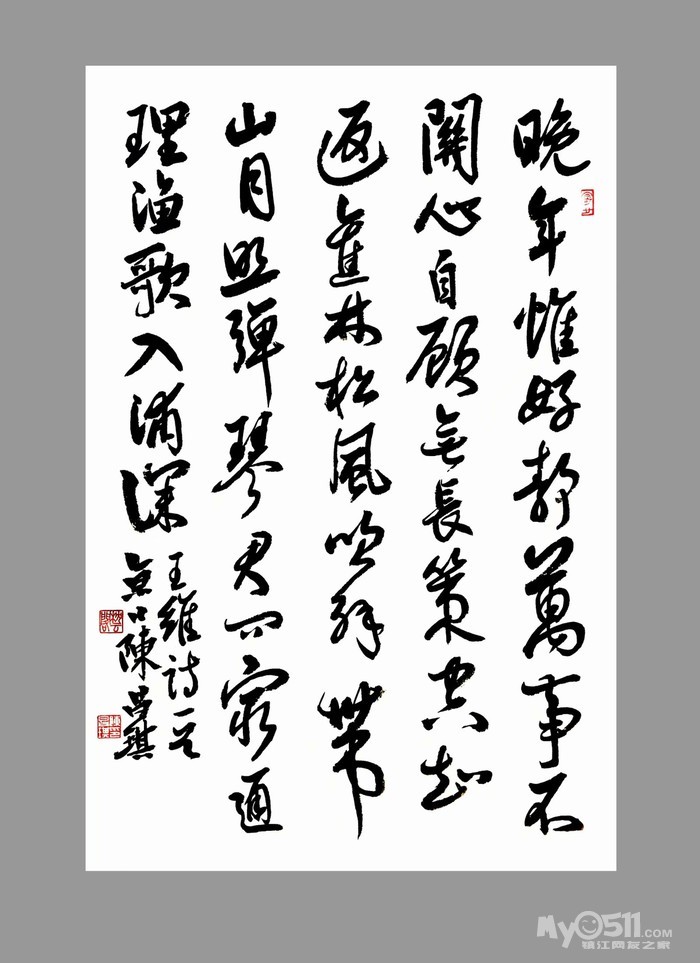 晚年惟好靜萬事不
關心自顧無長策空知
返舊林松風吹解帶
山月照彈琴君問窮通
理漁歌入浦深
王維詩一首
口陳昌
My0511.com
镇江网友之家